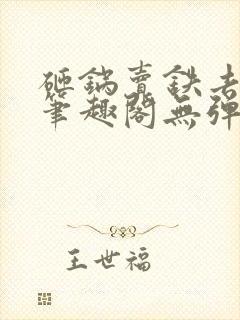 砸鍋賣鉄去
筆趣閣無彈
王世福